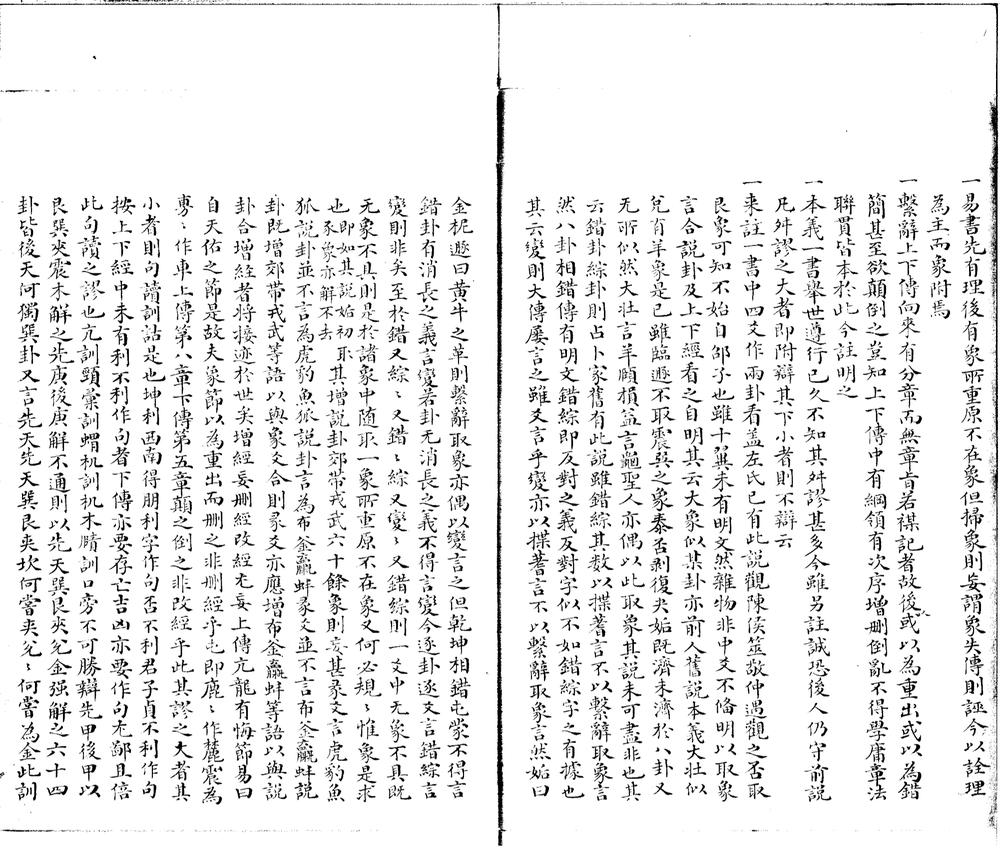 一易書先有理後有象所重原不在象但掃象則妄謂象失傳則誣今以詮理
為主而象附焉
一繫辭上下傳向來有分章而無章旨若襍記者故後人或以為重出或以為錯
簡甚至欲顛倒之豈知上下傳中有綱領有次序增刪倒亂不得學庸章法
聯貫皆本於此今註明之
一本義一書舉世遵行已久不知其舛謬甚多今雖另註誠恐後人仍守前說
凡舛謬之大者即附辯其下小者則不辯云
一來註一書中四爻作兩卦看蓋左氏已有此說觀陳侯筮敬仲遇觀之否取
艮象可知不始自邹子也雖十翼未有明文然雜物非中爻不偹明以取象
言合說卦及上下經看之自明其云大象似某卦亦前人舊說本義大壯似
兌有羊象是已雖臨遯不取震巽之象泰否剝復夬姤既濟未濟於八卦又
无所似然大壯言羊頤損益言龜聖人亦偶以此取象其說未可盡非也其
云錯卦綜卦則占卜家舊有此說雖錯綜其數以揲蓍言不以繫辭取象言
然八卦相錯傳有明文錯綜即反對之義反對字似不如錯綜字之有據也
其云變則大傳屢言之雖爻言乎變亦以揲蓍言不以繫辭取象言然姤曰
金柅遯曰黃牛之革則繫辭取象亦偶以變言之但乾坤相錯屯蒙不得言
錯卦有消長之義言變若卦无消長之義不得言變今逐卦逐爻言錯綜言
變則非矣至於錯又綜綜又錯綜又變變又錯綜則一爻中无象不具既
无象不具則是於諸象中随取一象所重原不在象又何必規規惟象是求
也即如其說始初豕象亦解不去取其增說卦郊帶戎武六十餘象則妄甚象爻言虎豹魚
狐說卦並不言為虎豹魚狐說卦言為布釜蠃蚌象爻並不言布釜蠃蚌說
卦既增郊帶戎武等語以與象爻合則彖爻亦應增布釜蠃蚌等語以與說
卦合增經者將接迹於世矣增經妄刪經改經尤妄上傳亢龍有悔節易曰
自天佑之節是故夫象節以為重出而刪之非刪經乎屯即鹿鹿作麓震為
旉旉作車上傳第八章下傳第五章顛之倒之非改經乎此其謬之大者其
小者則句讀訓詁是也坤利西南得朋利字作句否不利君子貞不利作句
按上下經中未有利不利作句者下傳亦要存亡吉凶亦要作句尤鄙且倍
此句讀之謬也亢訓頸彙訓蝟杌訓杌木臢訓口旁不可勝辯先甲後甲以
艮巽夾震木解之先庚後庚解不通則以先天巽艮夾兌金强解之六十四
卦皆後天何獨巽卦又言先天先天巽艮夾坎何嘗夾兌兌何嘗為金此訓